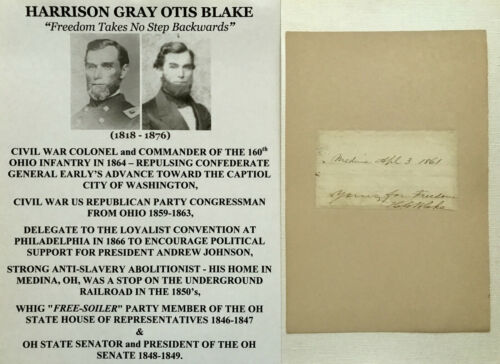 HARRISON GRAY OTIS BLAKE
"Freedom Takes No Step Backwards"
(1818 - 1876)
CIVIL WAR COLONEL and COMMANDER OF THE 160th
OHIO INFANTRY IN 1864 – REPULSING CONFEDERATE
GENERAL EARLY'S ADVANCE TOWARD THE CAPTIOL
CITY OF WASHINGTON,
CIVIL WAR US REPUBLICAN PARTY CONGRESSMAN
FROM OHIO 1859-1863,
DELEGATE TO THE LOYALIST CONVENTION AT
PHILADELPHIA IN 1866 TO ENCOURAGE POLITICAL
SUPPORT FOR PRESIDENT ANDREW JOHNSON,
STRONG ANTI-SLAVERY ABOLITIONIST - HIS HOME IN
MEDINA, OH, WAS A STOP ON THE UNDERGROUND
RAILROAD IN THE 1850's,
WHIG "FREE-SOILER" PARTY MEMBER OF THE OH
STATE HOUSE OF REPRESENTATIVES 1846-1847
&
OH STATE SENATOR and PRESIDENT OF THE OH
SENATE 1848-1849.
Medina Apl 3 1861
yours for Freedom
Blake